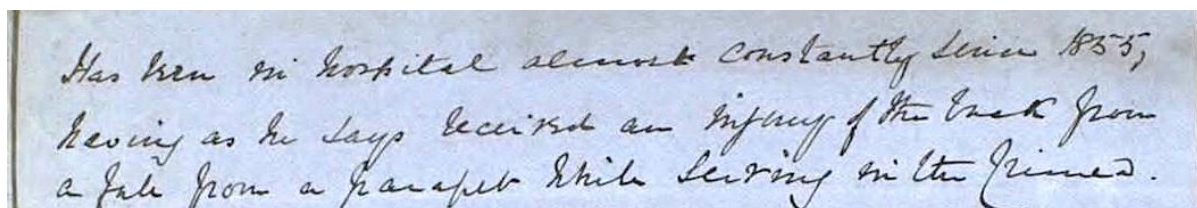 Has been in hospital almost constantly since 1855,
having as he says received an injury of the back from
a fall from a parapet while serving in the Crimea.